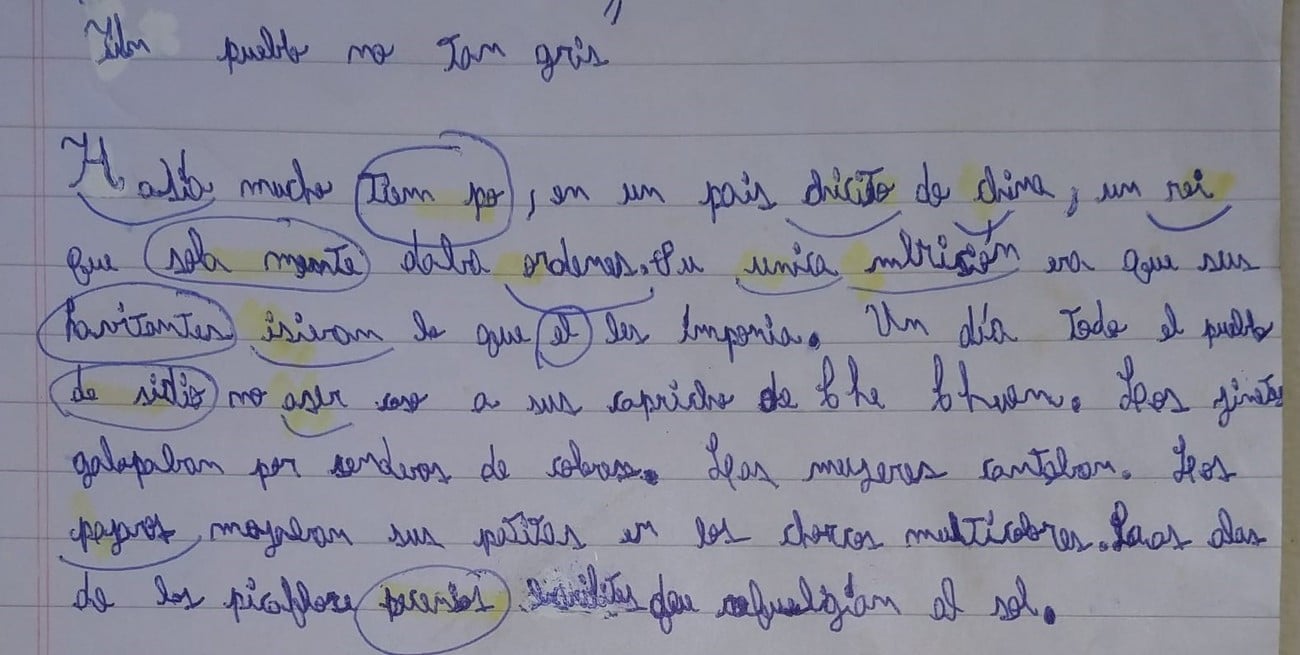 Un pueblo no tan gris
Hasía mucho tiem po, en un país chicito de china, un rei
que sola mente daba ordenes. Su unica ambrisión era que sus
havitantes isivan lo que el les Imponia. Un día todo el pueblo
de sidio no aser caso a sus capricho de Che Chuan. Los jinetes
galapaban por senderos de colores. Las mujeres cantaban. Los
pajaros mojaban sus patitas en los chorros multicolores. Las alas
de los picaflore que al sol.